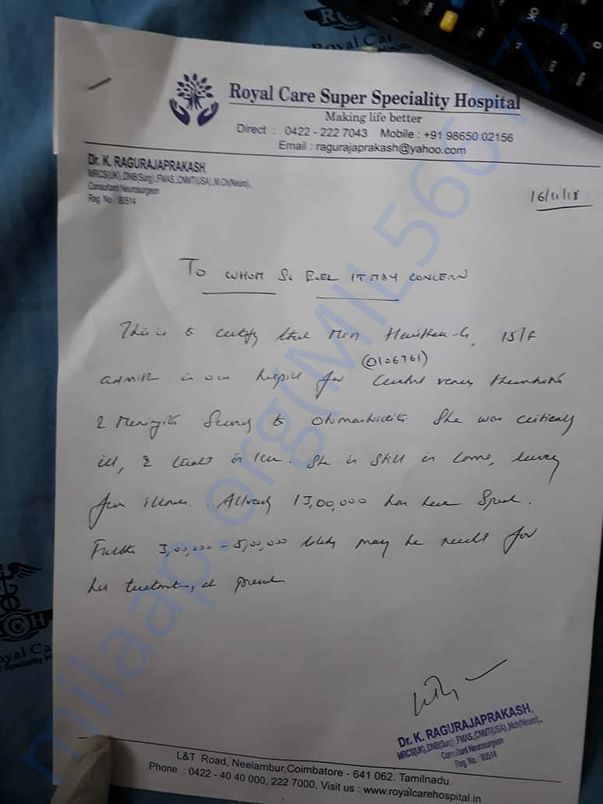 Royal Care Super Speciality Hospital
Making life better
Direct : 0422 - 222 7043 Mobile : +91 98650 02156
Email : ragurajaprakash@yahoo.com
Dr. K. RAGURAJAPRAKASH,
MRCS(UK),DNB(Surg),FMAS,CNMT(USA),M.Ch(Neuro).,
Consultant Neurosurgeon
Reg. No : 80514
16/11/18
TO WHOM SO EVER IT MAY CONCERN
This is to certify that 15/F
(0106761)
admitt in our for Central venous
& She was critically
ill, & in ICU. She is still in
from illness. Already 13,00,000 has been Spend.
Further 3,00,000 - 5,00,000 may be need for
her treatment, at present
Dr. K. RAGURAJAPRAKASH,
MRCS(UK),DNB(Surg),FMAS,CNMT(USA),Mch(Neuro).,
Consultant Neurosurgeon
Reg. No : 80514
L&T Road, Neelambur,Coimbatore - 641 062. Tamilnadu.
Phone : 0422 - 40 40 000, 222 7000, Visit us : www.royalcarehospital.in
milaap.org(MIL56617)